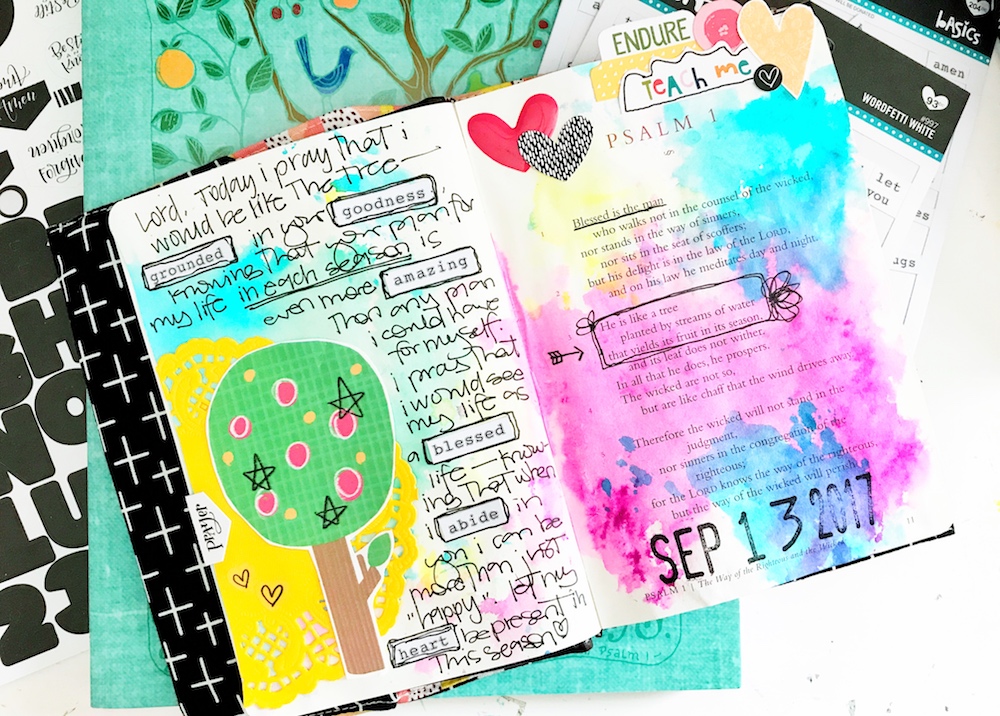 Lord, Today i pray that i
would be like The Tree —
grounded in your goodness
knowing that your plan for
my life in each season is
even more amazing
Than any plan
i could have
for myself.
i pray that
i would see
my life as
a blessed
life — know
ing that when
i abide in
you i can be
more than just
"happy". let my
heart be present in
This season
prayer
ENDURE
TEACH me
PSALM 1
Blessed is the man
who walks not in the counsel of the wicked,
nor stands in the way of sinners,
nor sits in the seat of scoffers;
but his delight is in the law of the LORD,
and on his law he meditates day and night.
He is like a tree
planted by streams of water
that yields its fruit in its season,
and its leaf does not wither.
In all that he does, he prospers.
The wicked are not so,
but are like chaff that the wind drives away.
Therefore the wicked will not stand in the
judgment,
nor sinners in the congregation of the
righteous;
for the LORD knows the way of the righteous,
but the way of the wicked will perish.
SEP 13 2017
11
PSALM 1 | The Way of the Righteous and the Wicked
Psalm 1
Amen
basics
amen
93
#097
WORDFETTI WHITE
let
you